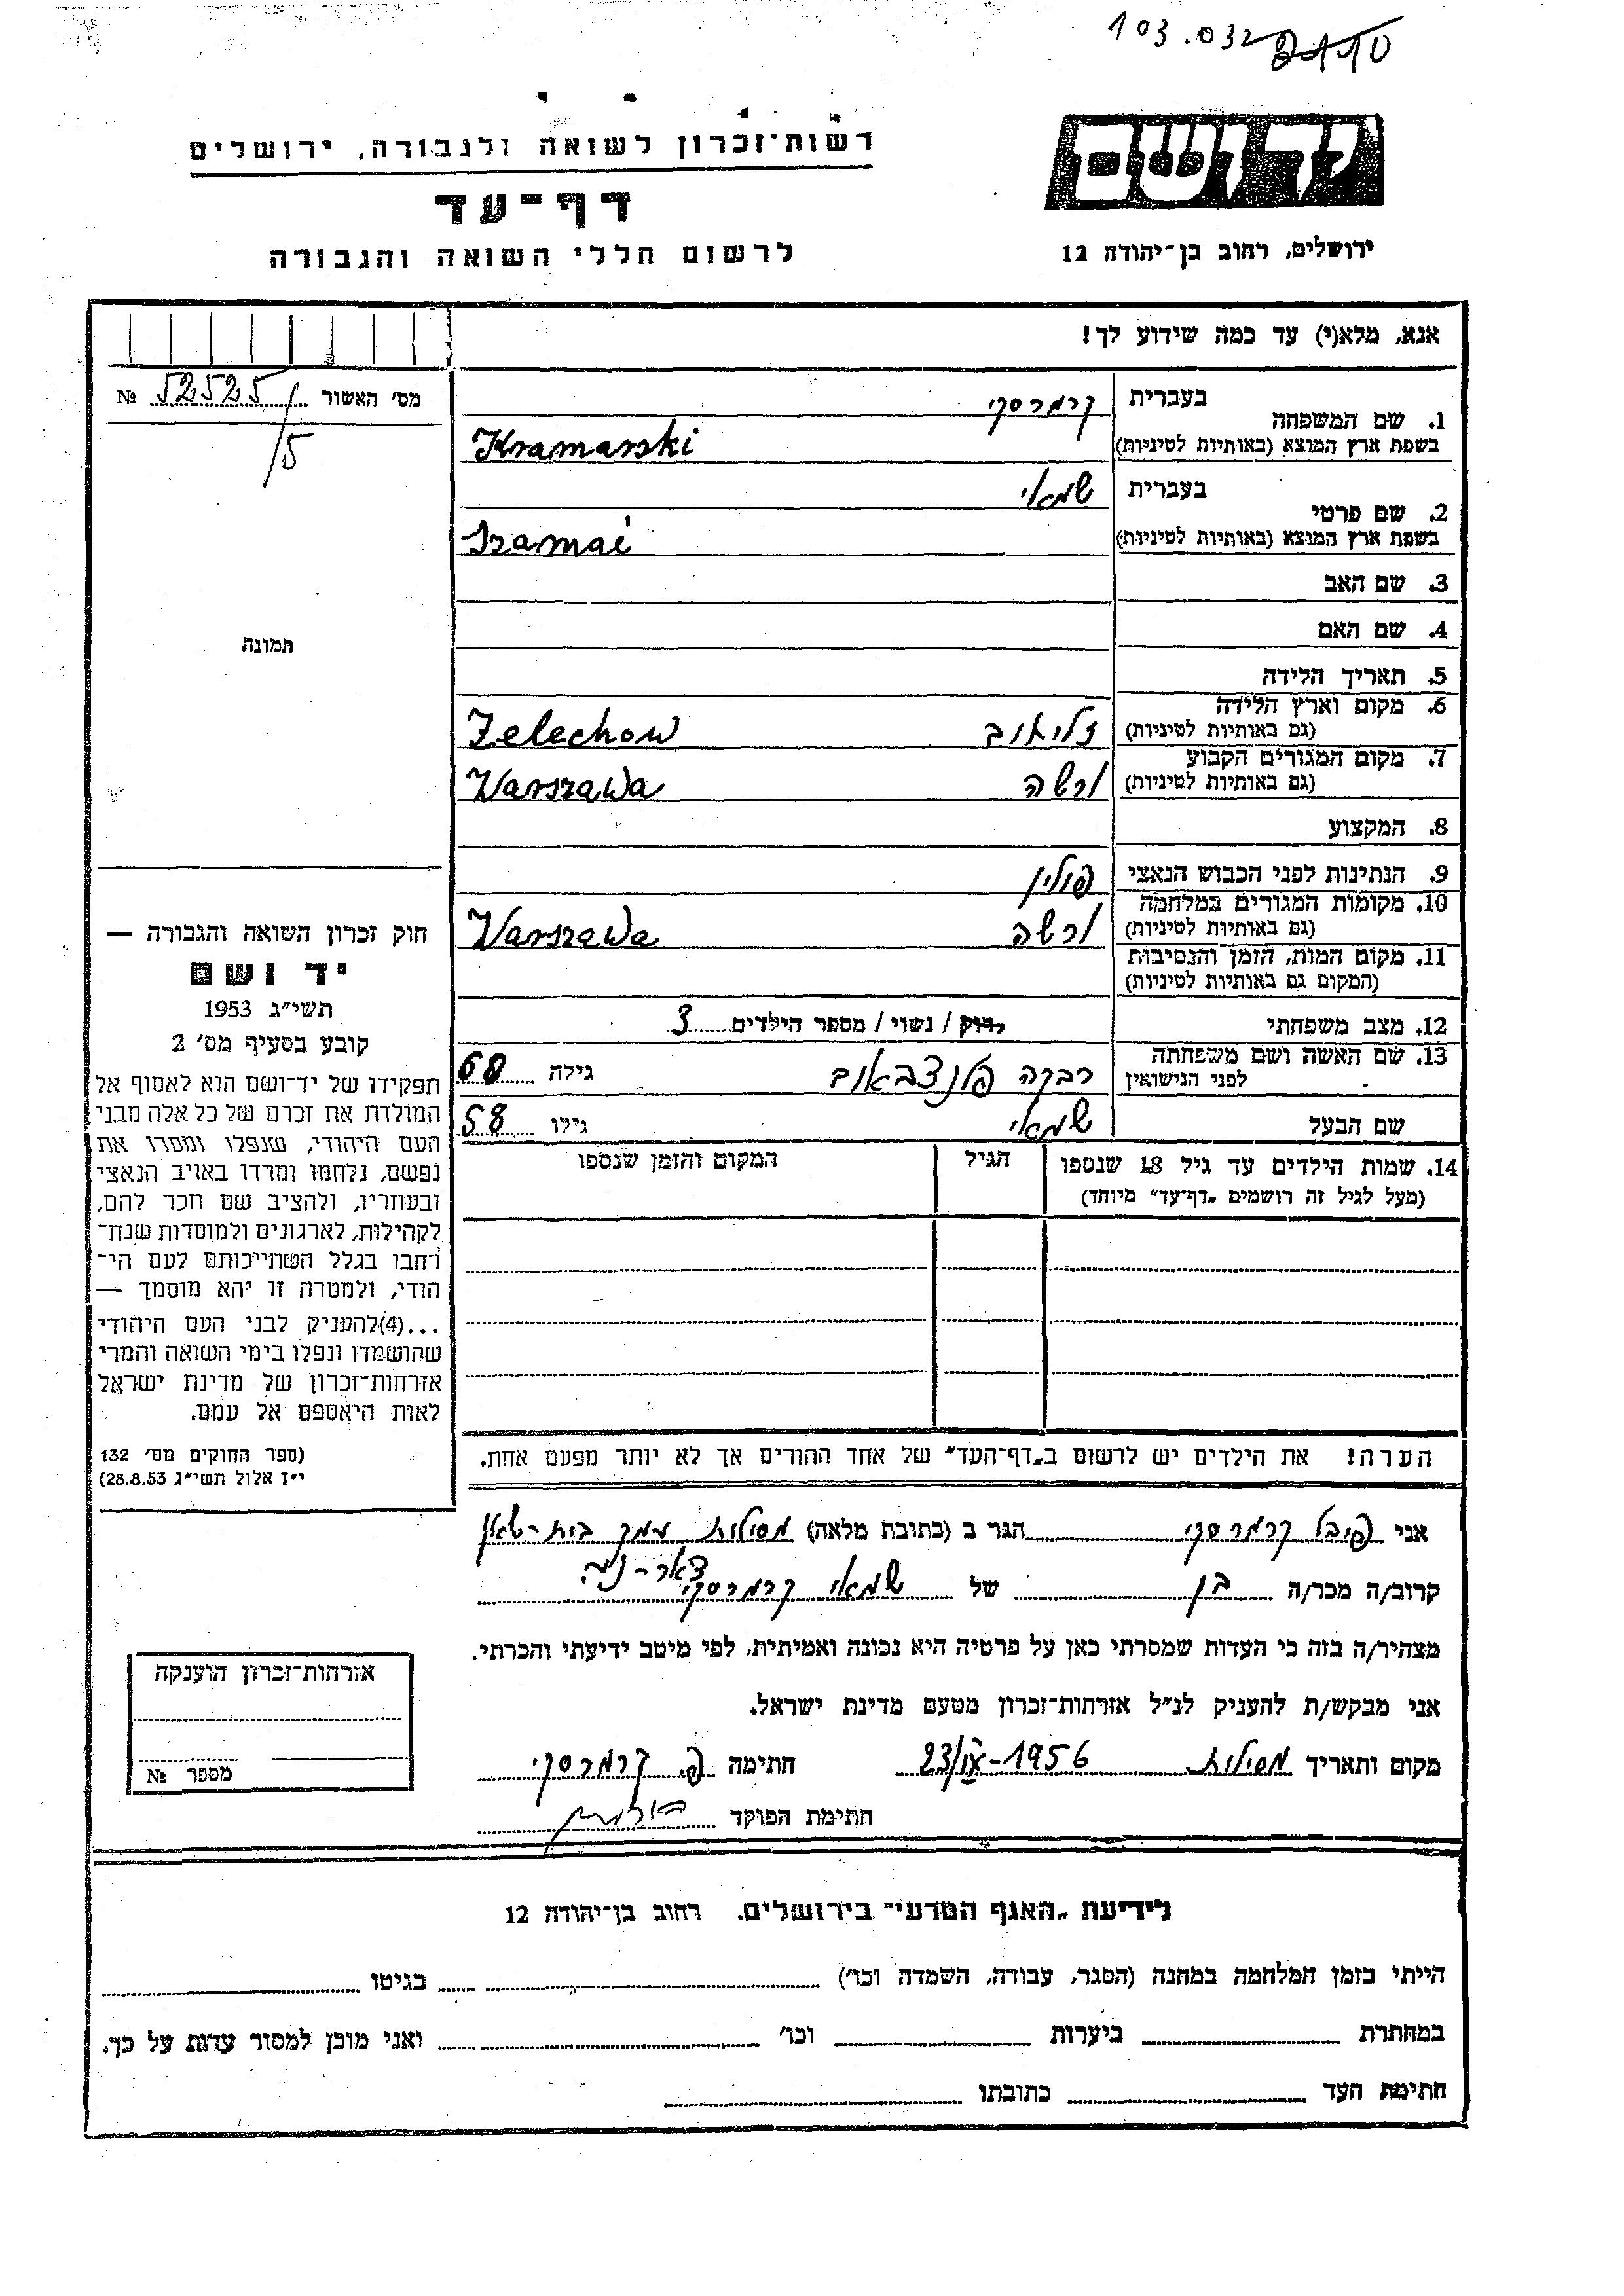 103.032
רשות־זכרון לשואה ולגבורה, ירושלים
יד ושם
דף־עד
לרשום חללי השואה והגבורה
ירושלים, רחוב בן־יהודה 12
אנא, מלא(י) עד כמה שידוע לך!
מס׳ האשור 52525/5 №
1. שם המשפחה
בעברית קרמרסקי
בשפת ארץ המוצא (באותיות לטיניות) Kramarski
2. שם פרטי
בעברית שמאי
בשפת ארץ המוצא (באותיות לטיניות) Szamai
3. שם האב
4. שם האם
תמונה
5. תאריך הלידה
6. מקום וארץ הלידה
(גם באותיות לטיניות) Zelechow
7. מקום המגורים הקבוע
(גם באותיות לטיניות) ורשה Warszawa
8. המקצוע
9. הנתינות לפני הכבוש הנאצי פולין
10. מקומות המגורים במלחמה
(גם באותיות לטיניות) ורשה Warszawa
11. מקום המות, הזמן והנסיבות
(המקום גם באותיות לטיניות)
12. מצב משפחתי רווק / נשוי / מספר הילדים 3
13. שם האשה ושם משפחתה
לפני הנישואין רבקה גילה 60
שם הבעל שמאי גילו 58
14. שמות הילדים עד גיל 18 שנספו הגיל המקום והזמן שנספו
(מעל לגיל זה רושמים „דף־עד״ מיוחד)
הערה! את הילדים יש לרשום ב„דף־העד״ של אחד ההורים אך לא יותר מפעם אחת.
חוק זכרון השואה והגבורה —
יד ושם
תשי״ג 1953
קובע בסעיף מס׳ 2
תפקידו של יד־ושם הוא לאסוף אל
המולדת את זכרם של כל אלה מבני
העם היהודי, שנפלו ומסרו את
נפשם, נלחמו ומרדו באויב הנאצי
ובעוזריו, ולהציב שם וזכר להם,
לקהילות, לארגונים ולמוסדות שנח־
רבו בגלל השתייכותם לעם הי־
הודי, ולמטרה זו יהא מוסמך —
...(4)להעניק לבני העם היהודי
שהושמדו ונפלו בימי השואה והמרי
אזרחות־זכרון של מדינת ישראל
לאות היאספם אל עמם.
(ספר החוקים מס׳ 132
י״ז אלול תשי״ג 28.8.53)
אני פייבל קרמרסקי הגר ב (כתובת מלאה) מסילות עמק בית-שאן
דאר-נע
קרוב/ה מכר/ה בן של שמאי קרמרסקי
מצהיר/ה בזה כי העדות שמסרתי כאן על פרטיה היא נכונה ואמיתית, לפי מיטב ידיעתי והכרתי.
אני מבקש/ת להעניק לנ״ל אזרחות־זכרון מטעם מדינת ישראל.
מקום ותאריך מסילות 23/IX-1956 חתימה פ. קרמרסקי
חתימת הפוקד
אזרחות־זכרון הוענקה
מספר №
לידיעת „האגף המדעי״ בירושלים. רחוב בן־יהודה 12
הייתי בזמן המלחמה במחנה (הסגר, עבודה, השמדה וכו׳) בגיטו
במחתרת ביערות וכו׳ ואני מוכן למסור עדות על כך.
חתימת העד כתובתו